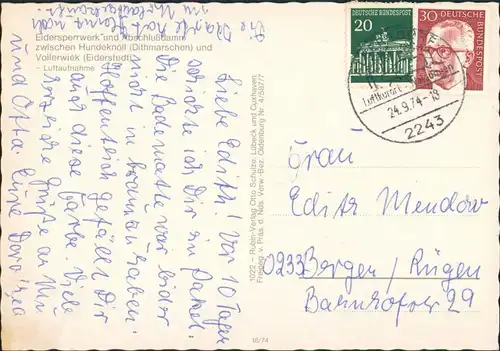 Eidersperrwerk und Abschlußdamm
zwischen Hundeknöll (Dithmarschen) und
Vollerwiek (Eiderstedt)
– Luftaufnahme –
1022 – Rubin-Verlag Otto Schulze, Lübeck und Cuxhaven
Freigeg. v. Präs. d. Nds. Verw.-Bez. Oldenburg Nr. 4/5877/
16/74
DEUTSCHE BUNDESPOST
20
30
DEUTSCHE BUNDESPOST
Luftkurort
24.9.74-18
2243
Liebe Edith! Vor 10 Tagen
schickte ich Dir ein Paket.
Die Bodenvase war leider
nicht in braun zu haben.
Hoffentlich gefällt Dir
auch diese Farbe. Viele
herzliche Grüße an
und Otta. Eure Dorothea
Frau
Edith Mendow
02333 Bergen / Rügen
Bahnhofstr 29